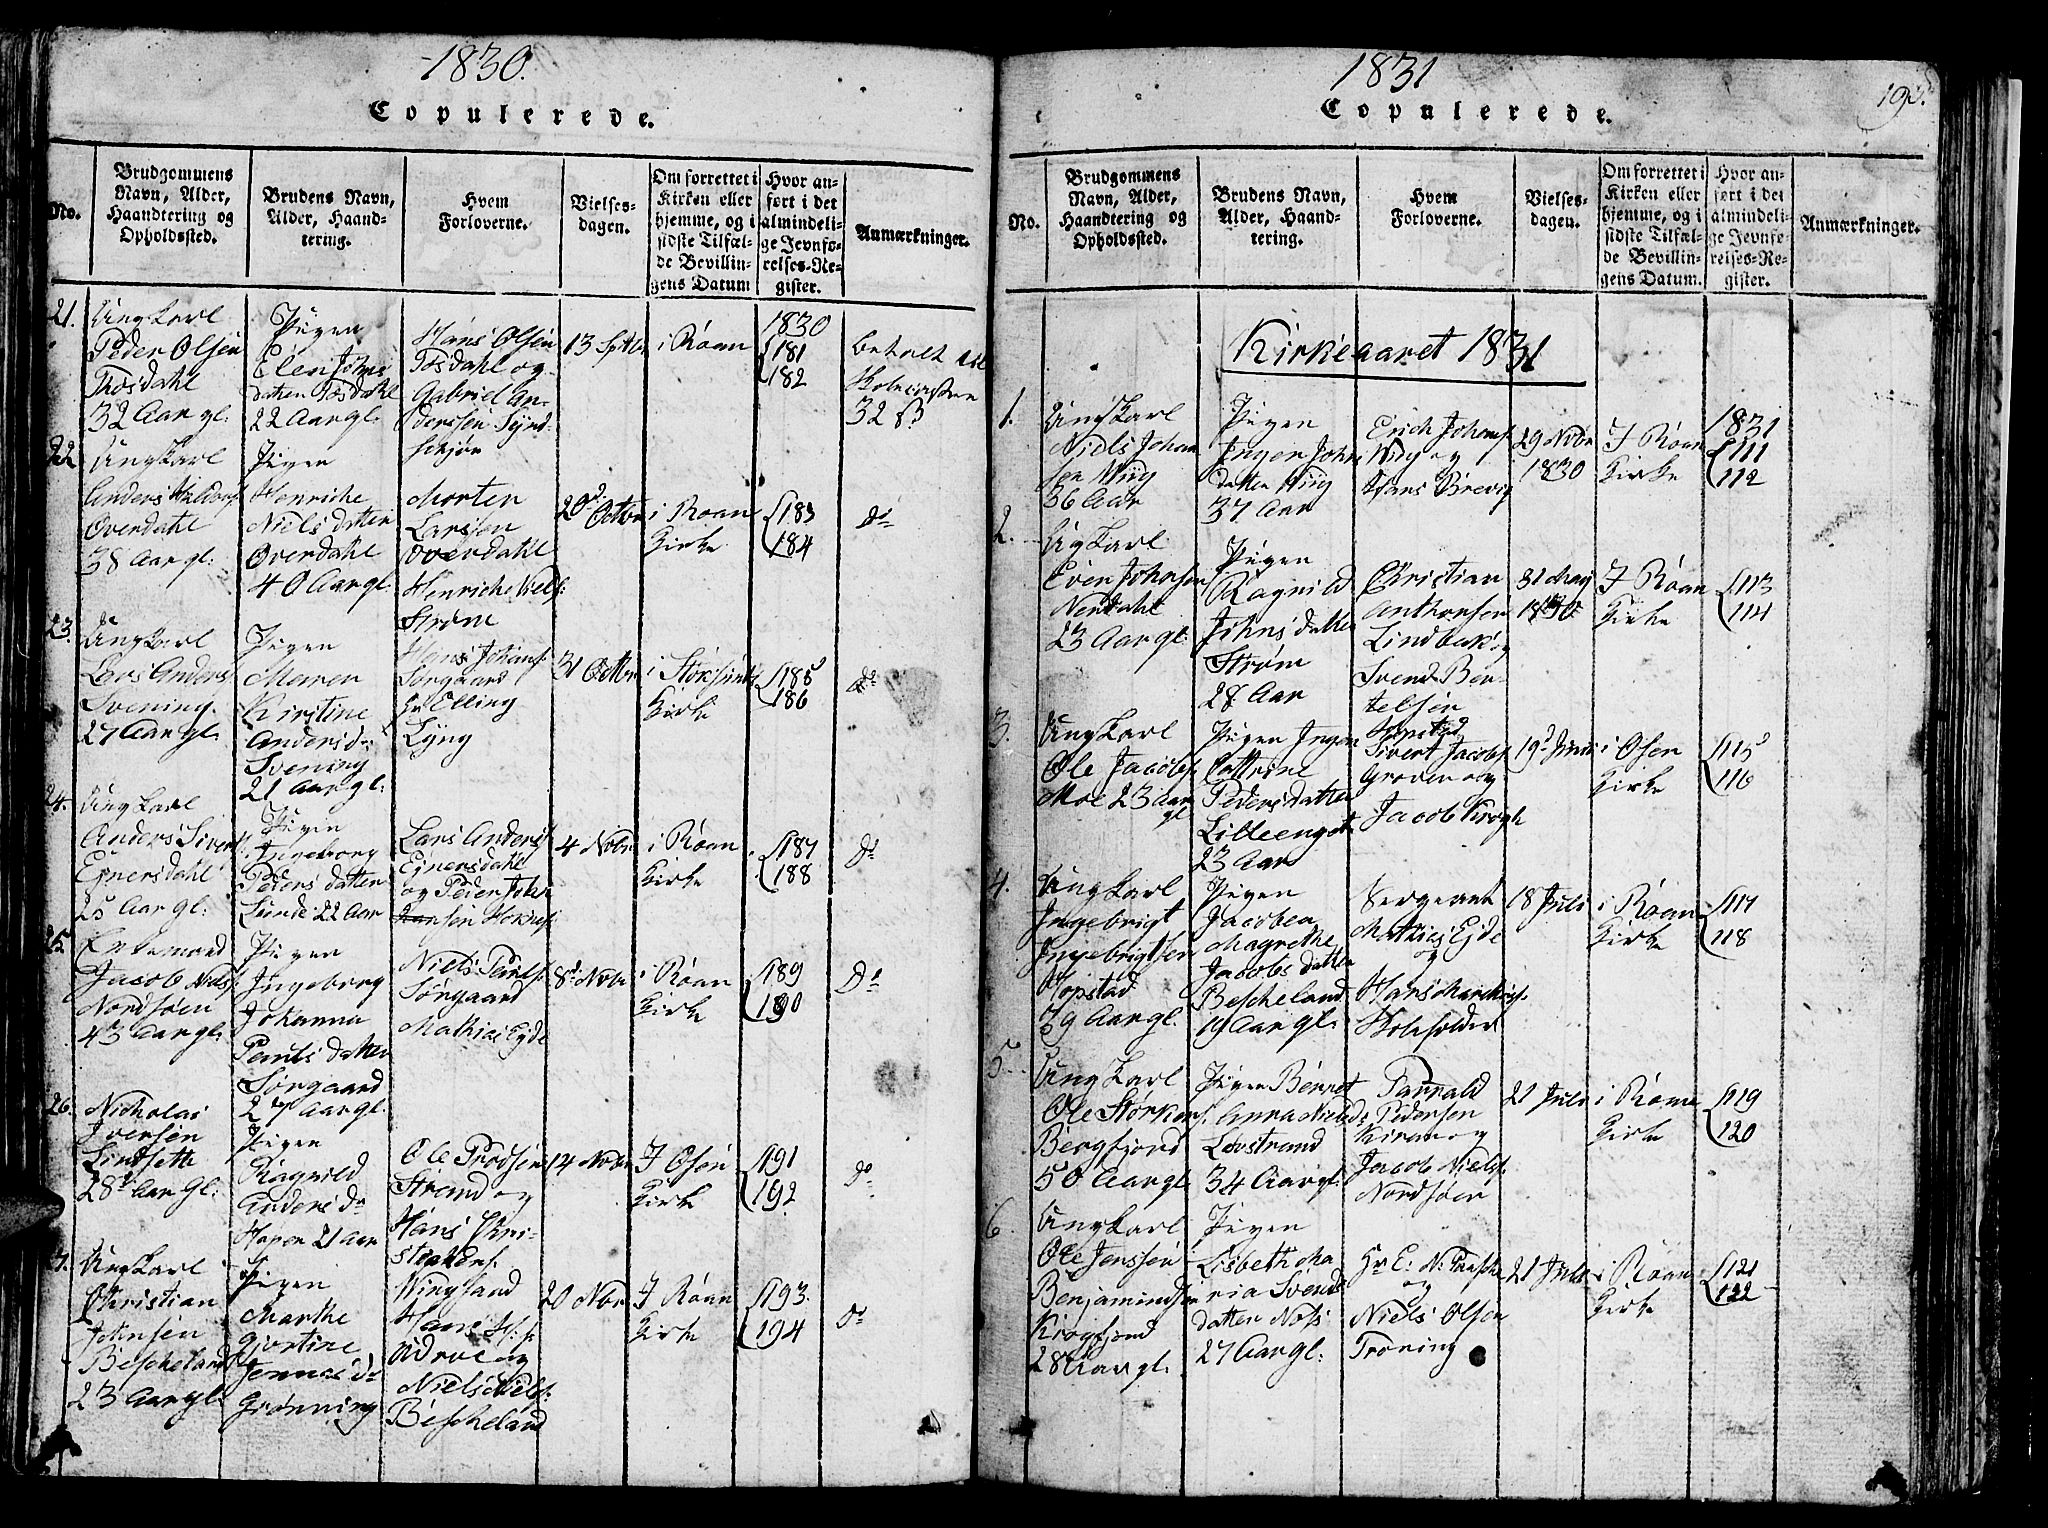 1830.
Copulerede.
No.
Brudgommens
Navn, Alder,
Haandtering og
Opholdssted.
Brudens Navn,
Alder, Haand-
tering.
Hvem
Forloverne.
Vielses-
dagen.
Om forrettet i
Kirken eller
hjemme, og i
sidste Tilfæl-
de Bevillin-
gens Datum
Hvor an-
ført i det
almindeli-
ge Jevnfø-
relses-Re-
gister.
Anmærkninger.
21.
Ungkarl
Peder Olsen
Tøsdahl
32 Aar gl.
Pigen
Elen Johns
datten Tøsdahl
22 Aar gl.
Hans Olsen
Tøsdahl og
Gabriel An-
derssen Synd-
schjør
13 Sptbr
i Roan
1830
181
182
betalt til
Skolecassen
32 ß
22
Ungkarl
Anders Haldors.
Overdahl
38 Aar gl.
Pigen
Henriche
Nielsdatten
Overdahl
40 Aar gl.
Morten
Larssen
Overdahl
Henriche Niels.
Strøm
20d Octbr
i Roan
Kirke
183
184
do
23.
Ungkarl
Lars Anders
Svening.
27 Aar gl.
Pigen
Maren
Kirstine
Andersd.
Svening
21 Aar gl.
Hans Johans.
Sørgaard
Hr Elling
Lyng
31 Octbr
i Stoksund
Kirke
185
186
do
24.
Ungkarl
Anders Siver
Ejnersdahl
25 Aar gl.
Pigen
Ingeborg
Pedersdatten
Lunde 22 Aar
Lars Anders
Ejnersdahl
og Peder Joha
sen Hofnes.
4 Nobr
i Roan
Kirke
187
188
do
25.
Enkemand
Jacob Niels.
Nordsøen
43 Aar gl.
Pigen
Ingeborg
Johanna
Pouls datten
Sørgaard
27 Aar gl.
Niels Pouls.
Sørgaard
Mathias Ejde
8d Nobr
i Roan
Kirke
189
190
Do
26.
Nicholai
Iversen
Lindseth
28 Aar Gl.
Pigen
Ragnild
Andersdr
Hopen 21 aar
Ole Trodsen
Strand og
Hans Chri-
stians.
14 Nobr
I Osen
Kirke
191
192
do
Ungkarl
Christian
Johnsen
Bescheland
23 Aar gl.
Pigen
Marthe
Giertine
Jonnasdr
Grønning
Vingsand
Hans H.
Udroe og
Niels Niels.
Bescheland
20 Nobr
I Roan
Kirke
193.
194
do
1831
195.
Copulerede.
No.
Brudgommens
Navn, Alder,
Haandtering og
Opholdssted.
Brudens Navn,
Alder, Haand-
tering.
Hvem
Forloverne.
Vielses-
dagen.
Om forrettet i
Kirken eller
hjemme, og i
sidste Tilfæl-
de Bevillin-
gens Datum.
Hvor an-
ført i det
almindeli-
ge Jevnfø-
relses-Re-
gister.
Anmærkninger.
Kirkeaaret 1831
1.
Ungkarl
Niels Johan
sen Wiig
36 Aar
Pigen
Inger Johns
datten Wiig
37 Aar
Erich Johans.
Wiig og
Hans Brevig
29 Nobr
1830
I Roan
Kirke
1831
111
112
2.
Ugkarl
Even Johnsen
Nerdahl
23 Aar gl.
Pigen
Ragnild
Johnsdatten
Strøm
28 Aar
Christian
Anthonsen
Lindbak og
Svend Ben-
telsen
Hopstad
31 May
I Roan
Kirke
113
114
3.
Ungkarl
Ole Jacobs.
Moe 23 Aar
gl
Pigen Inger
Cathrine
Pedersdatten
Lilleenget
23 Aar
Sivert Jacobs.
Groven og
Jacob Krogh
19d Juni
i Osen
Kirke
115
116
4.
Ungkarl
Ingebrigt
Ingebrigtsen
Hopstad
39 Aar gl.
Pigen
Jacobea
Magrethe
Jacobsdatten
Bescheland
19 Aar gl.
Sergeant
Mathias Ejde
og
Hans
Skoleholder
18 Juli
i Roan
Kirke
117
118
5
Ungkarl
Ole Størkers.
Bergfjord
50 Aar gl
Pigen Beret
Anna Nielsd
Løvstrand
34 Aar gl.
Parnald
Pedersen
Kiran og
Jacob Niels.
Nordsøen
21 Juli
i Roan
Kirke
119
120
6
Ungkarl
Ole Jenssen
Benjaminds
Krogfjord
28 Aar gl.
Pigen
Lisbeth Ma
ria Svends
datten Næs.
27 Aar gl.
Hr E: N:
og
Niels Olsen
Trøning
21 Juli
i Roan
Kirke
121
122